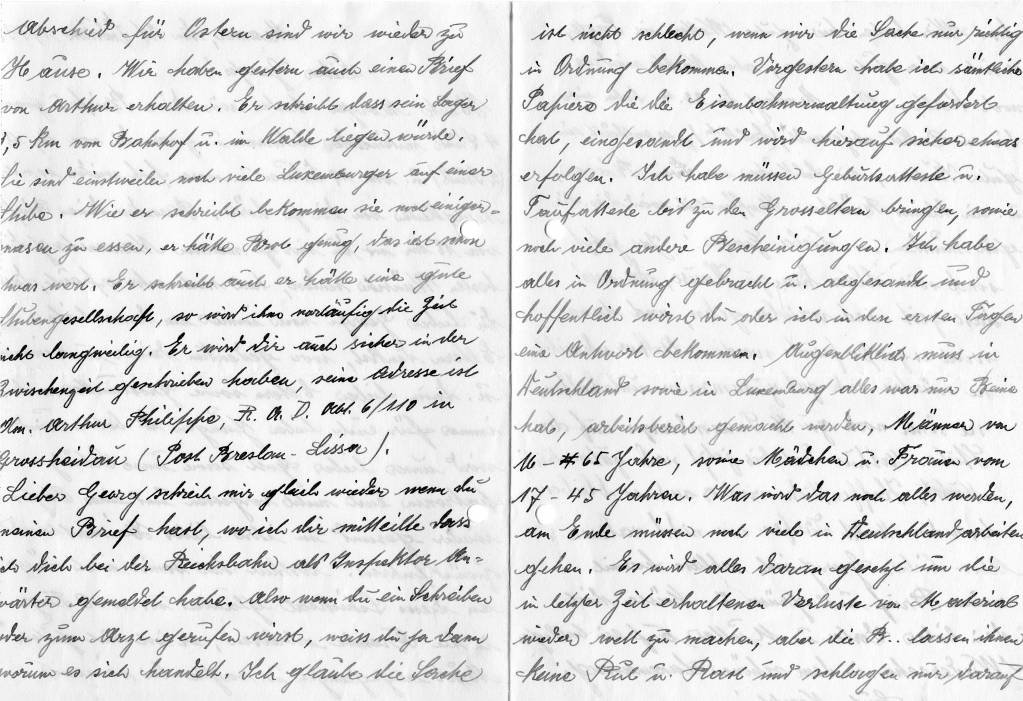 Abschied für Ostern sind wir wieder zu
Hause. Wir haben gestern auch einen Brief
von Arthur erhalten. Er schreibt dass sein Lager
1,5 km vom Bahnhof u. im Walde liegen würde.
Sie sind einstweilen noch viele Luxemburger auf einer
Stube. Wie er schreibt bekommen sie noch einiger-
masen zu essen, er hätte Brot genug, das ist schon
etwas wert. Er schreibt auch er hätte eine gute
Stubengesellschaft, so wird ihm vorläufig die Zeit
nicht langweilig. Er wird dir auch sicher in der
Zwischenzeit geschrieben haben, seine Adresse ist
Arthur Philippe, R. A. D. Abt. 6/110 in
Grossheidau (Post Breslau - Lissa).
Lieber Georg schreib mir gleich wieder wenn du
meinen Brief hast, wo ich dir mitteilte dass
ich dich bei der Reichsbahn als Inspektor An-
wärter gemeldet habe. Also wenn du ein Schreiben
oder zum Arzt gerufen wirst, weiss du ja dann
worum es sich handelt. Ich glaube die Sache
ist nicht schlecht, wenn wir die Sache nur richtig
in Ordnung bekommen. Vorgestern habe ich sämtliche
Papiere die die Eisenbahnverwaltung gefordert
hat, eingesandt und wird hierauf sicher etwas
erfolgen. Ich habe müssen Geburtsatteste u.
Taufatteste bis zu den Grosseltern bringen, sowie
noch viele andere Bescheinigungen. Ich habe
alles in Ordnung gebracht u. abgesandt und
hoffentlich wirst du oder ich in den ersten Tagen
eine Antwort bekommen. Augenblicklich muss in
Deutschland sowie in Luxemburg alles war nur Beine
hat, arbeitsbereit gemacht werden, Männer von
16 - 65 Jahre, sowie Mädchen u. Frauen vom
17 - 45 Jahren. Was wird das noch alles werden,
am Ende müssen noch viele in Deutschland arbeiten
gehen. Es wird alles daran gesetzt um die
in letzter Zeit erhaltenen Verluste von Material
wieder wett zu machen, aber die B.. lassen ihnen
keine Ruh u. Rast und schlagen nur darauf